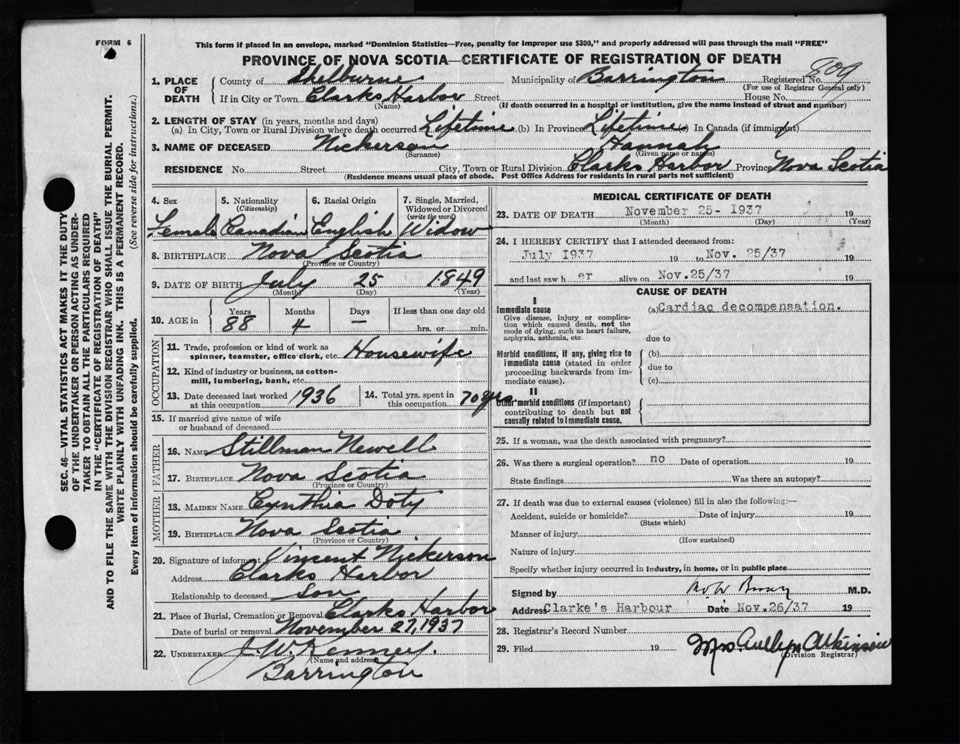 FORM 6
This form if placed in an envelope, marked "Dominion Statistics—Free, penalty for improper use $300," and properly addressed will pass through the mail "FREE"
PROVINCE OF NOVA SCOTIA—CERTIFICATE OF REGISTRATION OF DEATH
1. PLACE OF DEATH County of Shelburne Municipality of Barrington Registered No. 809
(For use of Registrar General only)
If in City or Town Clarks Harbor Street House No.
(Name) (If death occurred in a hospital or institution, give the name instead of street and number)
2. LENGTH OF STAY (in years, months and days)
(a) In City, Town or Rural Division where death occurred Lifetime (b) In Province Lifetime In Canada (if immigrant)
3. NAME OF DECEASED Nickerson Hannah
(Surname) (Given name or names)
RESIDENCE No. Street City, Town or Rural Division Clarks Harbor Province Nova Scotia
(Residence means usual place of abode. Post Office Address for residents in rural parts not sufficient)
4. Sex 5. Nationality (Citizenship) 6. Racial Origin 7. Single, Married, Widowed or Divorced (write the word)
Female Canadian English Widow
8. BIRTHPLACE Nova Scotia
(Province or Country)
9. DATE OF BIRTH July 25 1849
(Month) (Day) (Year)
10. AGE in Years Months Days If less than one day old
88 4 — hrs. or min.
OCCUPATION
11. Trade, profession or kind of work as spinner, teamster, office clerk, etc. Housewife
12. Kind of industry or business, as cotton-mill, lumbering, bank, etc.
13. Date deceased last worked at this occupation 1936 14. Total yrs. spent in this occupation 70 yrs
15. If married give name of wife or husband of deceased
FATHER
16. NAME Stillman Newell
17. BIRTHPLACE Nova Scotia
(Province or Country)
MOTHER
18. MAIDEN NAME Cynthia Doty
19. BIRTHPLACE Nova Scotia
(Province or Country)
20. Signature of informant Vincent Nickerson
Address Clarks Harbor
Relationship to deceased Son
21. Place of Burial, Cremation or Removal Clarks Harbor
Date of burial or removal November 27, 1937
22. UNDERTAKER J. W. Kenney.
(Name and address)
Barrington
MEDICAL CERTIFICATE OF DEATH
23. DATE OF DEATH November 25- 1937 19
(Month) (Day) (Year)
24. I HEREBY CERTIFY that I attended deceased from:
July 1937 19 to Nov. 25/37 19
and last saw h er alive on Nov.25/37 19
CAUSE OF DEATH
I
Immediate cause (a) Cardiac decompensation.
Give disease, injury or complication which caused death, not the mode of dying, such as heart failure, asphyxia, asthenia, etc.
due to
Morbid conditions, if any, giving rise to immediate cause (stated in order proceeding backwards from immediate cause).
(b)
due to
(c)
II
Other morbid conditions (if important) contributing to death but not causally related to immediate cause.
25. If a woman, was the death associated with pregnancy?
26. Was there a surgical operation? no Date of operation 19
State findings Was there an autopsy?
27. If death was due to external causes (violence) fill in also the following:—
Accident, suicide or homicide? Date of injury 19
(State which)
Manner of injury
(How sustained)
Nature of injury
Specify whether injury occurred in industry, in home, or in public place
Signed by M.D.
Address Clarke's Harbour Date Nov.26/37 19
28. Registrar's Record Number
29. Filed 19 Mrs Atkinson
(Division Registrar)
SEC. 46—VITAL STATISTICS ACT MAKES IT THE DUTY
OF THE UNDERTAKER OR PERSON ACTING AS UNDER-
TAKER TO OBTAIN ALL THE PARTICULARS REQUIRED
IN THE "CERTIFICATE OF REGISTRATION OF DEATH"
AND TO FILE THE SAME WITH THE DIVISION REGISTRAR WHO SHALL ISSUE THE BURIAL PERMIT.
WRITE PLAINLY WITH UNFADING INK. THIS IS A PERMANENT RECORD.
Every item of information should be carefully supplied. (See reverse side for instructions.)